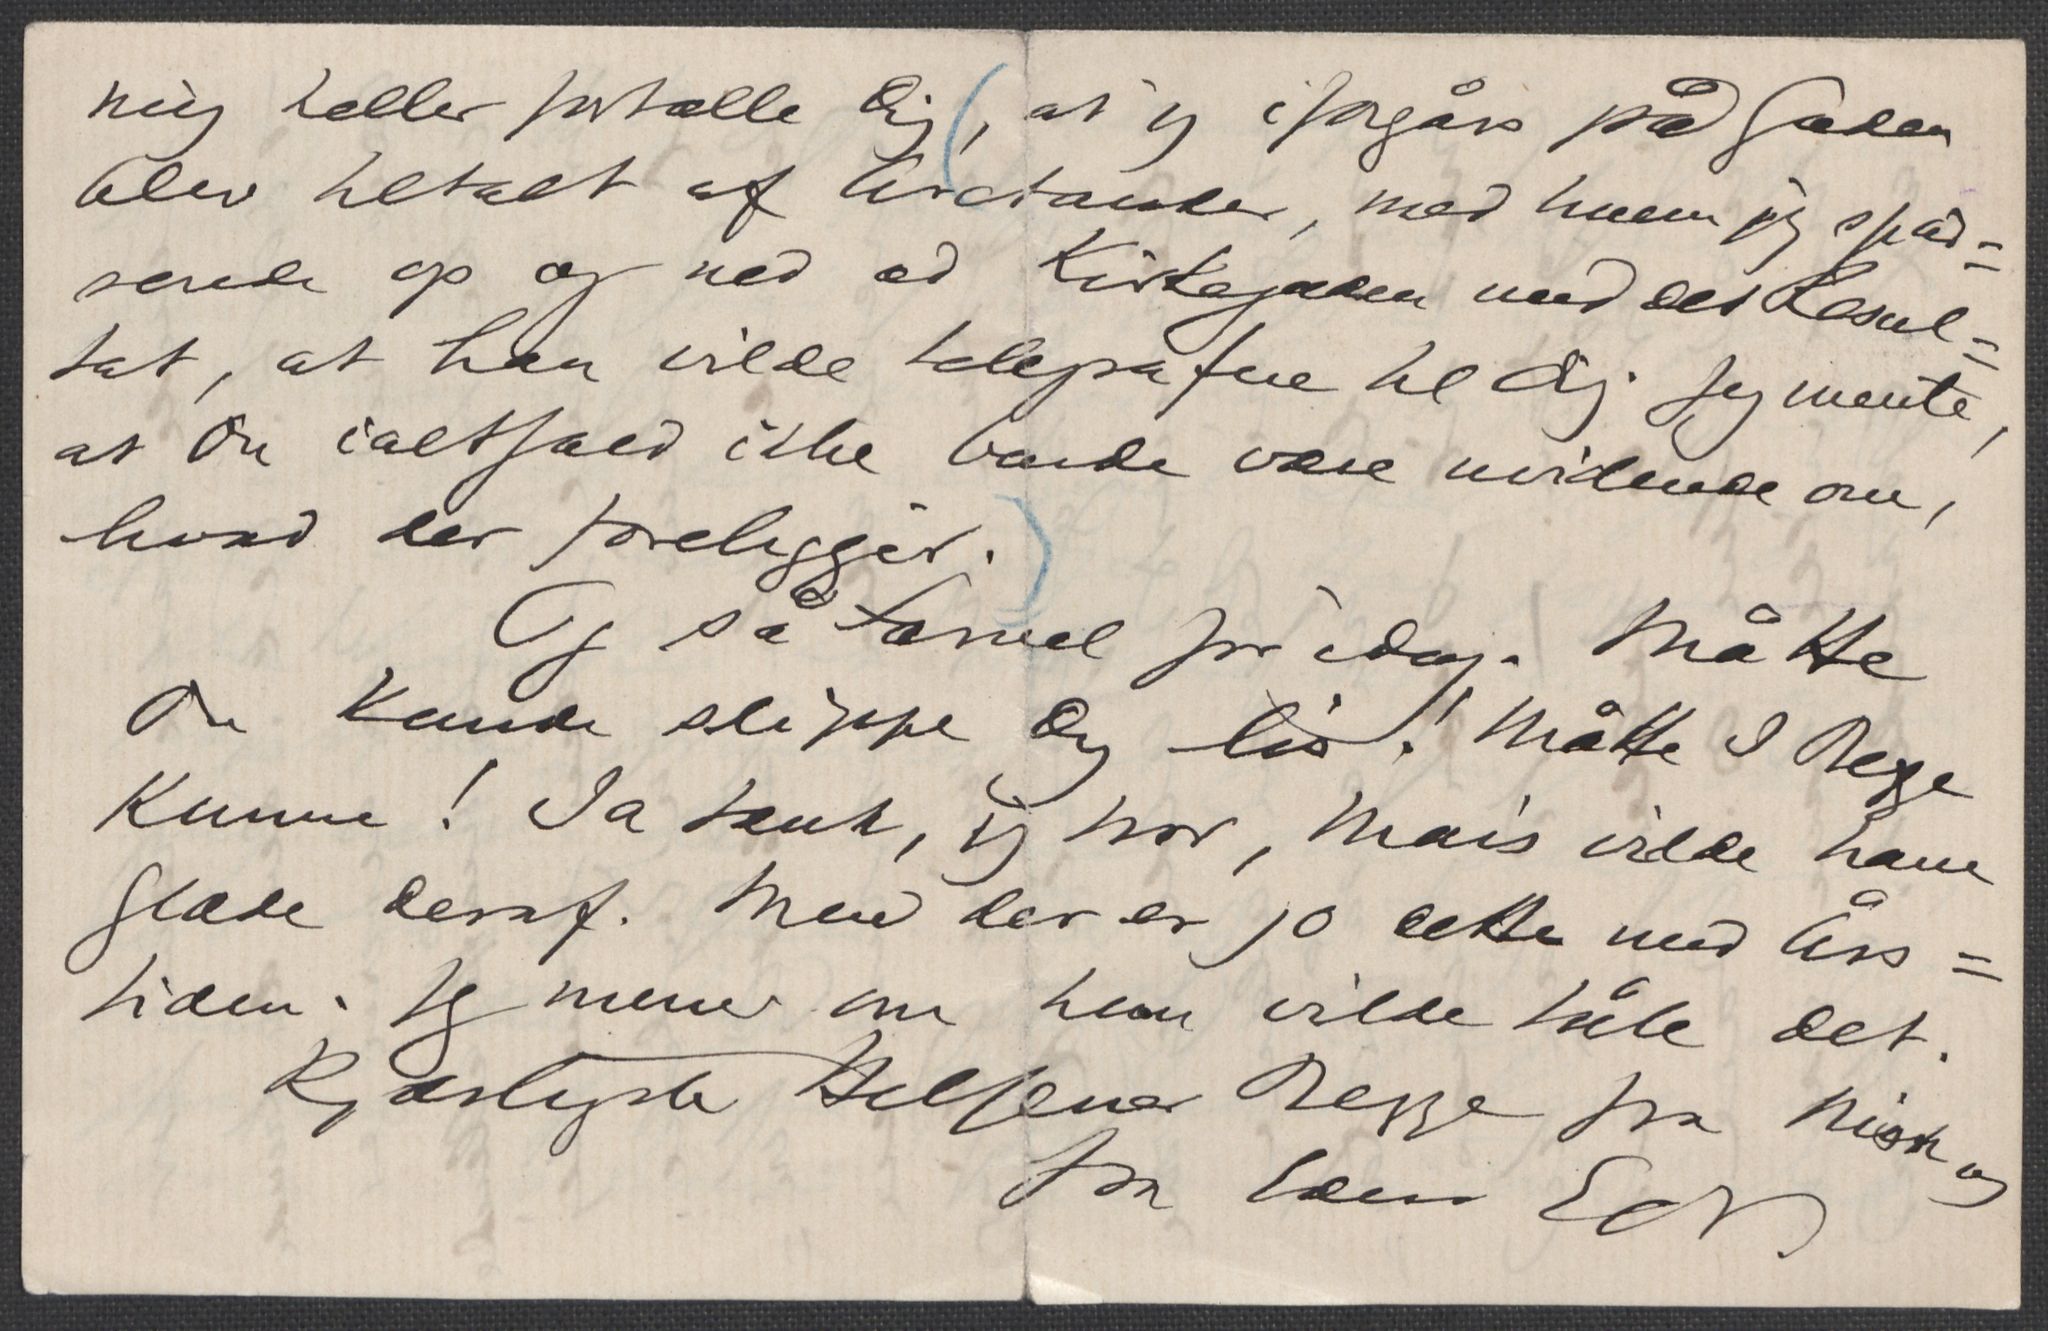 mig heller fortælle Dig, at jeg iforgårs på Gaden
blev tiltalt af Arctander, med hvem jeg spad=
serede op og ned ad Kirkegaden med det Resul=
tat, at han vilde telegrafere til Dig. Jeg mente,
at Du ialtfald ikke burde være uvidende om,
hvad der foreligger.
Og så Farvel for idag. Måtte
Du kunde slippe Dig løs! Måtte I Begge
kunne! Ja tænk, jeg tror, Mais vilde have
Glæde deraf. Men der er jo dette med Års=
tiden. Jeg mener om hun vilde tåle det.
Kjærligste Hilsener Begge fra Nina og
fra Eders EdV.